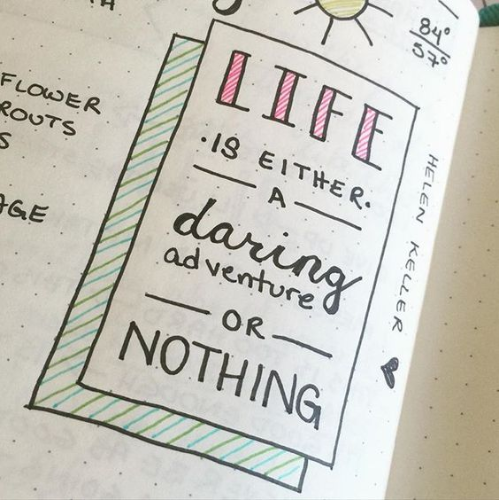 84°
57°
FLOWER
ROUTS
S
AGE
LIFE
·IS EITHER·
A
daring
adventure
OR
NOTHING
HELEN KELLER